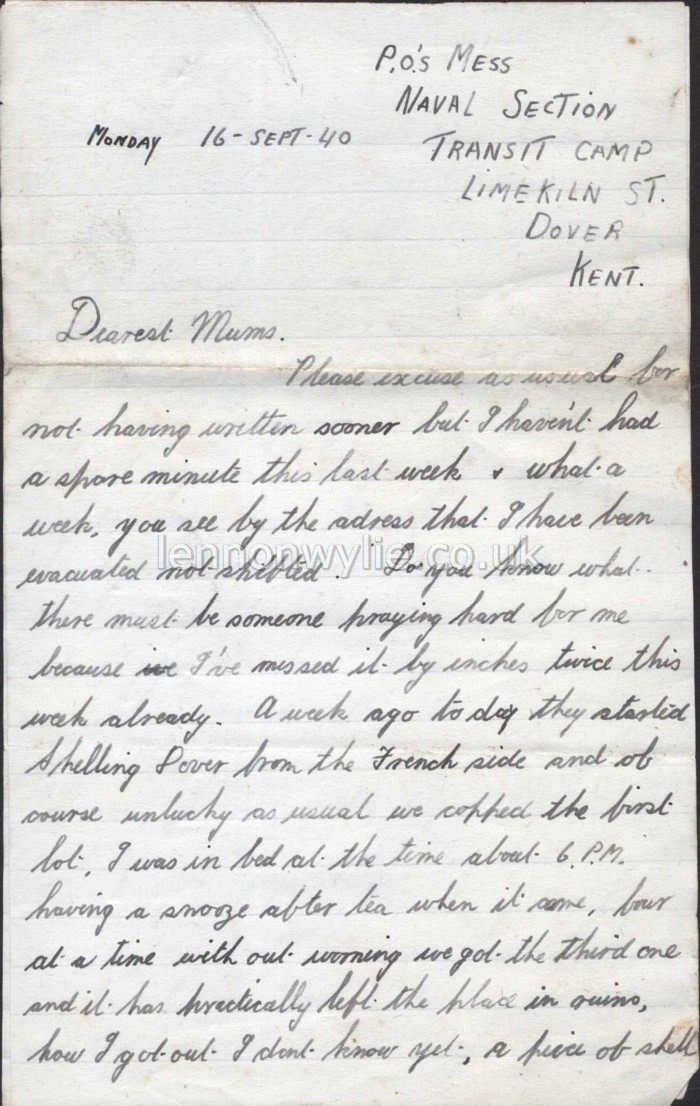 P.O's MESS
NAVAL SECTION
MONDAY 16-SEPT-40
TRANSIT CAMP
LIMEKILN ST.
DOVER
KENT.
Dearest Mums.
Please excuse as usual for
not having written sooner but I haven't had
a spare minute this last week & what a
week, you see by the adress that I have been
lennonwylie.co.uk
evacuated not shifted. Do you know what
there must be someone praying hard for me
because we I've missed it by inches twice this
week already. A week ago to day they started
shelling Dover from the French side and of
course unlucky as usual we copped the first
lot, I was in bed at the time about 6.P.M.
having a snooze after tea when it came, four
at a time with out warning we got the third one
and it has practically left the place in ruins,
how I got out I dont know yet, a piece of shell